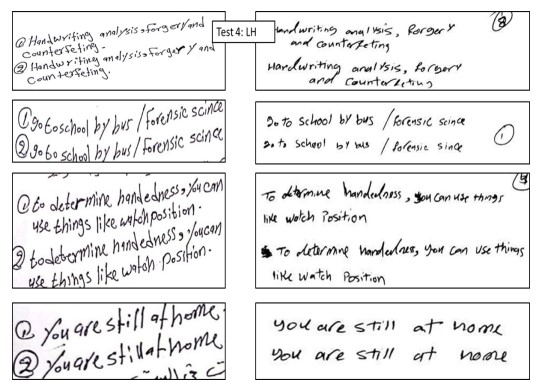 Test 4: LH
① Handwriting analysis, forgery and
counterfeting.
② Handwriting analysis, forgery and
counterfeting.
Handwriting analysis, Forgery
and counterfeting
Handwriting analysis, forgery
and counterfeting
③
① go to school by bus / forensic scince
② go to school by bus / forensic scince
go to school by bus / forensic scince
go to school by bus / forensic since
①
① to determine handedness, you can
use things like watch position.
② to determine handedness, you can
use things like watch position.
To determine handedness, you can use things
like watch Position
To determine handedness, you can use things
like watch Position
① You are still at home.
② You are still at home
you are still at home
you are still at home